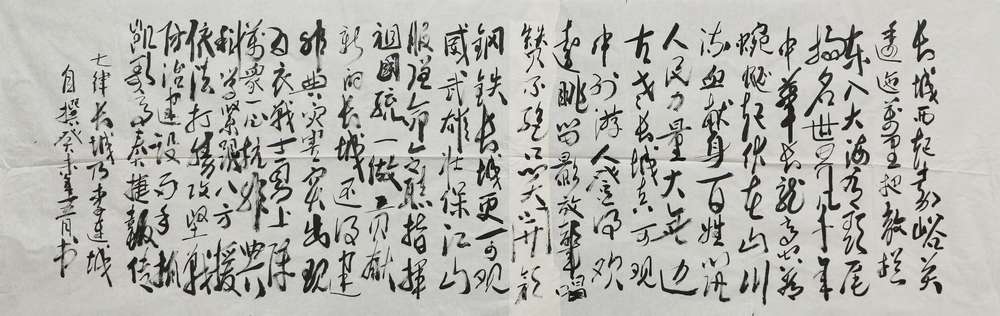 长城西起嘉峪关
逶迤万里把敌拦
东入大海为龙尾
扬名世界几千年
中华长龙高昂首
蜿蜒起伏在山川
流血献身百姓
人民力量大无边
古老长城真可观
中外游人登得欢
远眺留影放声唱
赞不绝口大开颜
钢铁长城更可观
威武雄壮保江山
服从命令听指挥
祖国統一做贡献
新的长城还得建
非典灾害突出现
白衣战士勇上阵
万眾一心抗非典
科学紧跟八方援
依法打胜攻坚战
防治建设两手抓
凯歌高奏捷报传
七律长城乃李连城
自撰癸未年五月书